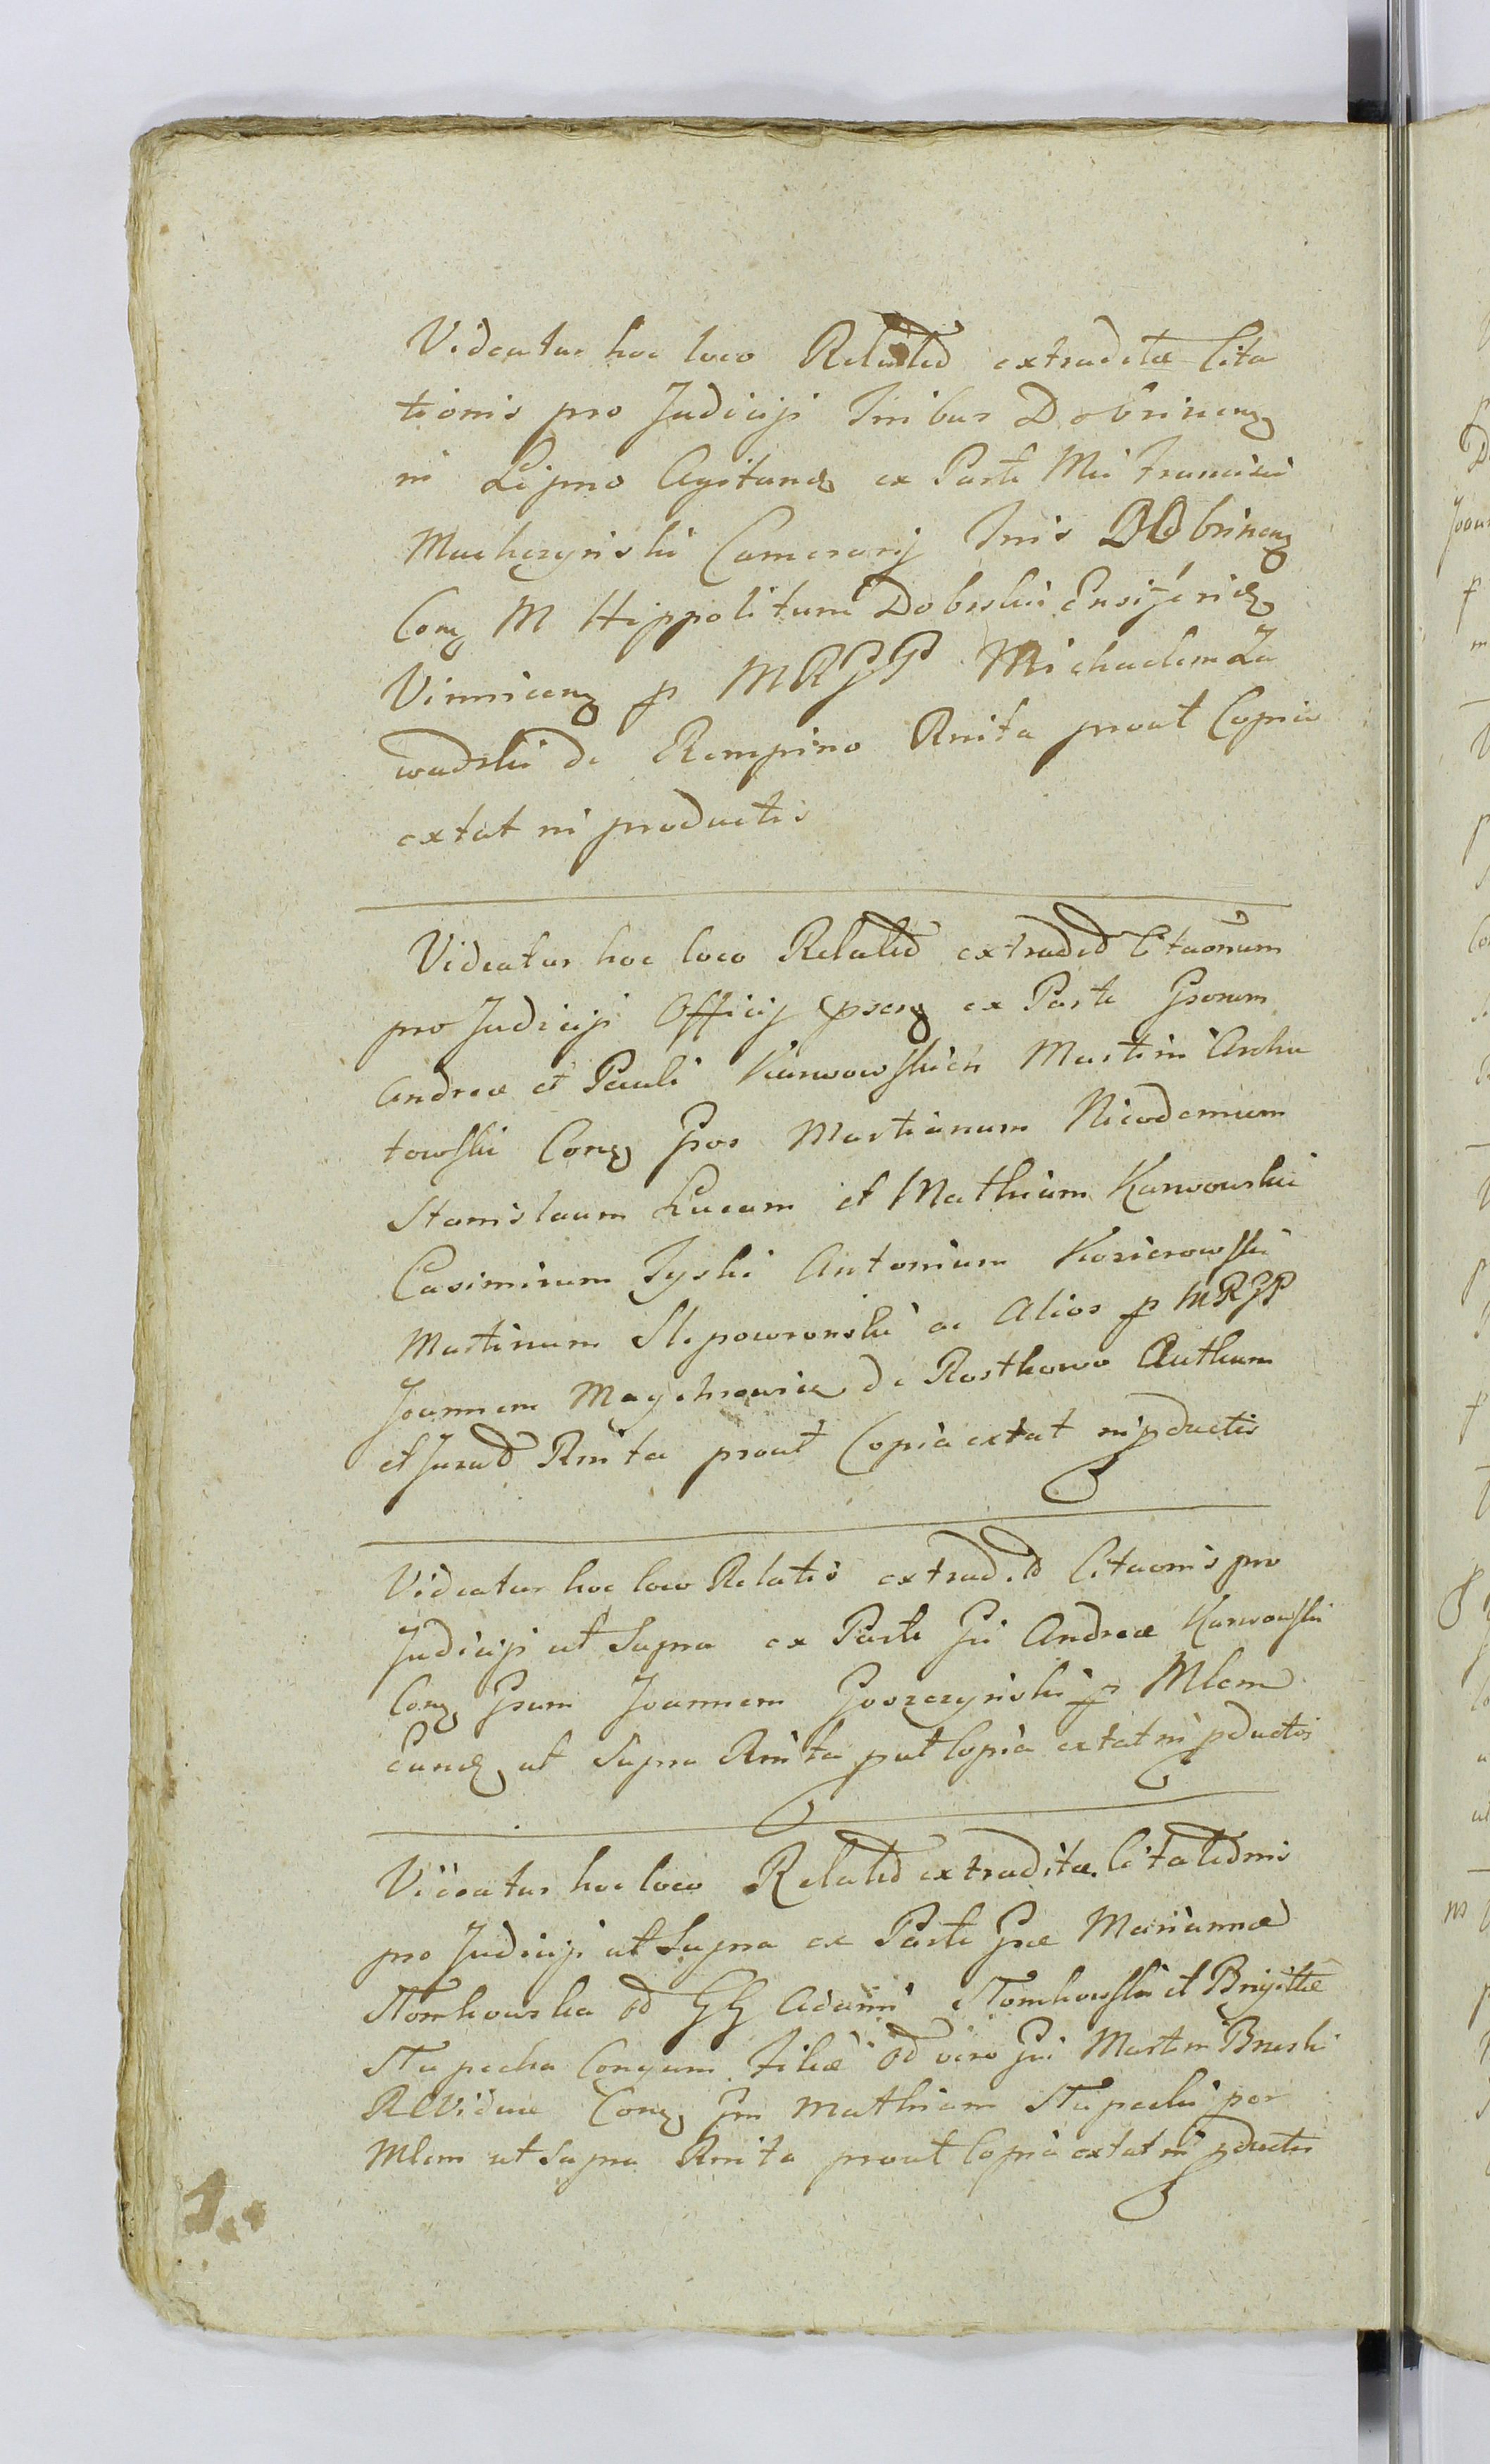 Videatur hoc loco Relatio extraditæ Cita
tionis pro Judicijs Tribus Dobrinen
in Lipno Agitand ex Parte Mci Francisci
Machczynski Camerarij Tris Dobrinen
Con M Hippolitum Dobrski Ensiferid
Vinnicen p MRGP Michaelem Za
wadzki de Rempino Rnita prout Copia
extat in productis
Videatur hoc loco Relatio extrad Citaonum
pro Judicijs Officij psen ex Parte Gsorum
Andreæ et Pauli Karwowskich Martini Archu
towski Con Gsos Martianum Nicodemum
Stanislaum Lucam et Mathiam Karwowskii
Casimirum Tyski Antonium Kosierowski
Martinum Slepowronski ac Alios p MRGP
Joannem Maychrowicz de Rostkowo Authum
et Jurad Rnita prout Copia extat in pductis
Videatur hoc loco Relatio extrad Citaonis pro
Judicijs ut Supra ex Parte Gsi Andreæ Karwowski
Con Gsum Joannem Goszczynski p Mlem
Eund ut Supra Rnita put Copia extat in pductis
Videatur hoc loco Relatio extraditæ Citationis
pro Judicijs ut Supra ex Parte Gsæ Mariannæ
Slomkowska GG Adami Slomkowski et Brigittæ
Stupecka Conyum Filiæ vero Gsi Martini Brzeski
Viduæ Con Gsm Mathiam Stupecki per
Mlem ut Supra Rnita prout Copia extat in pductis